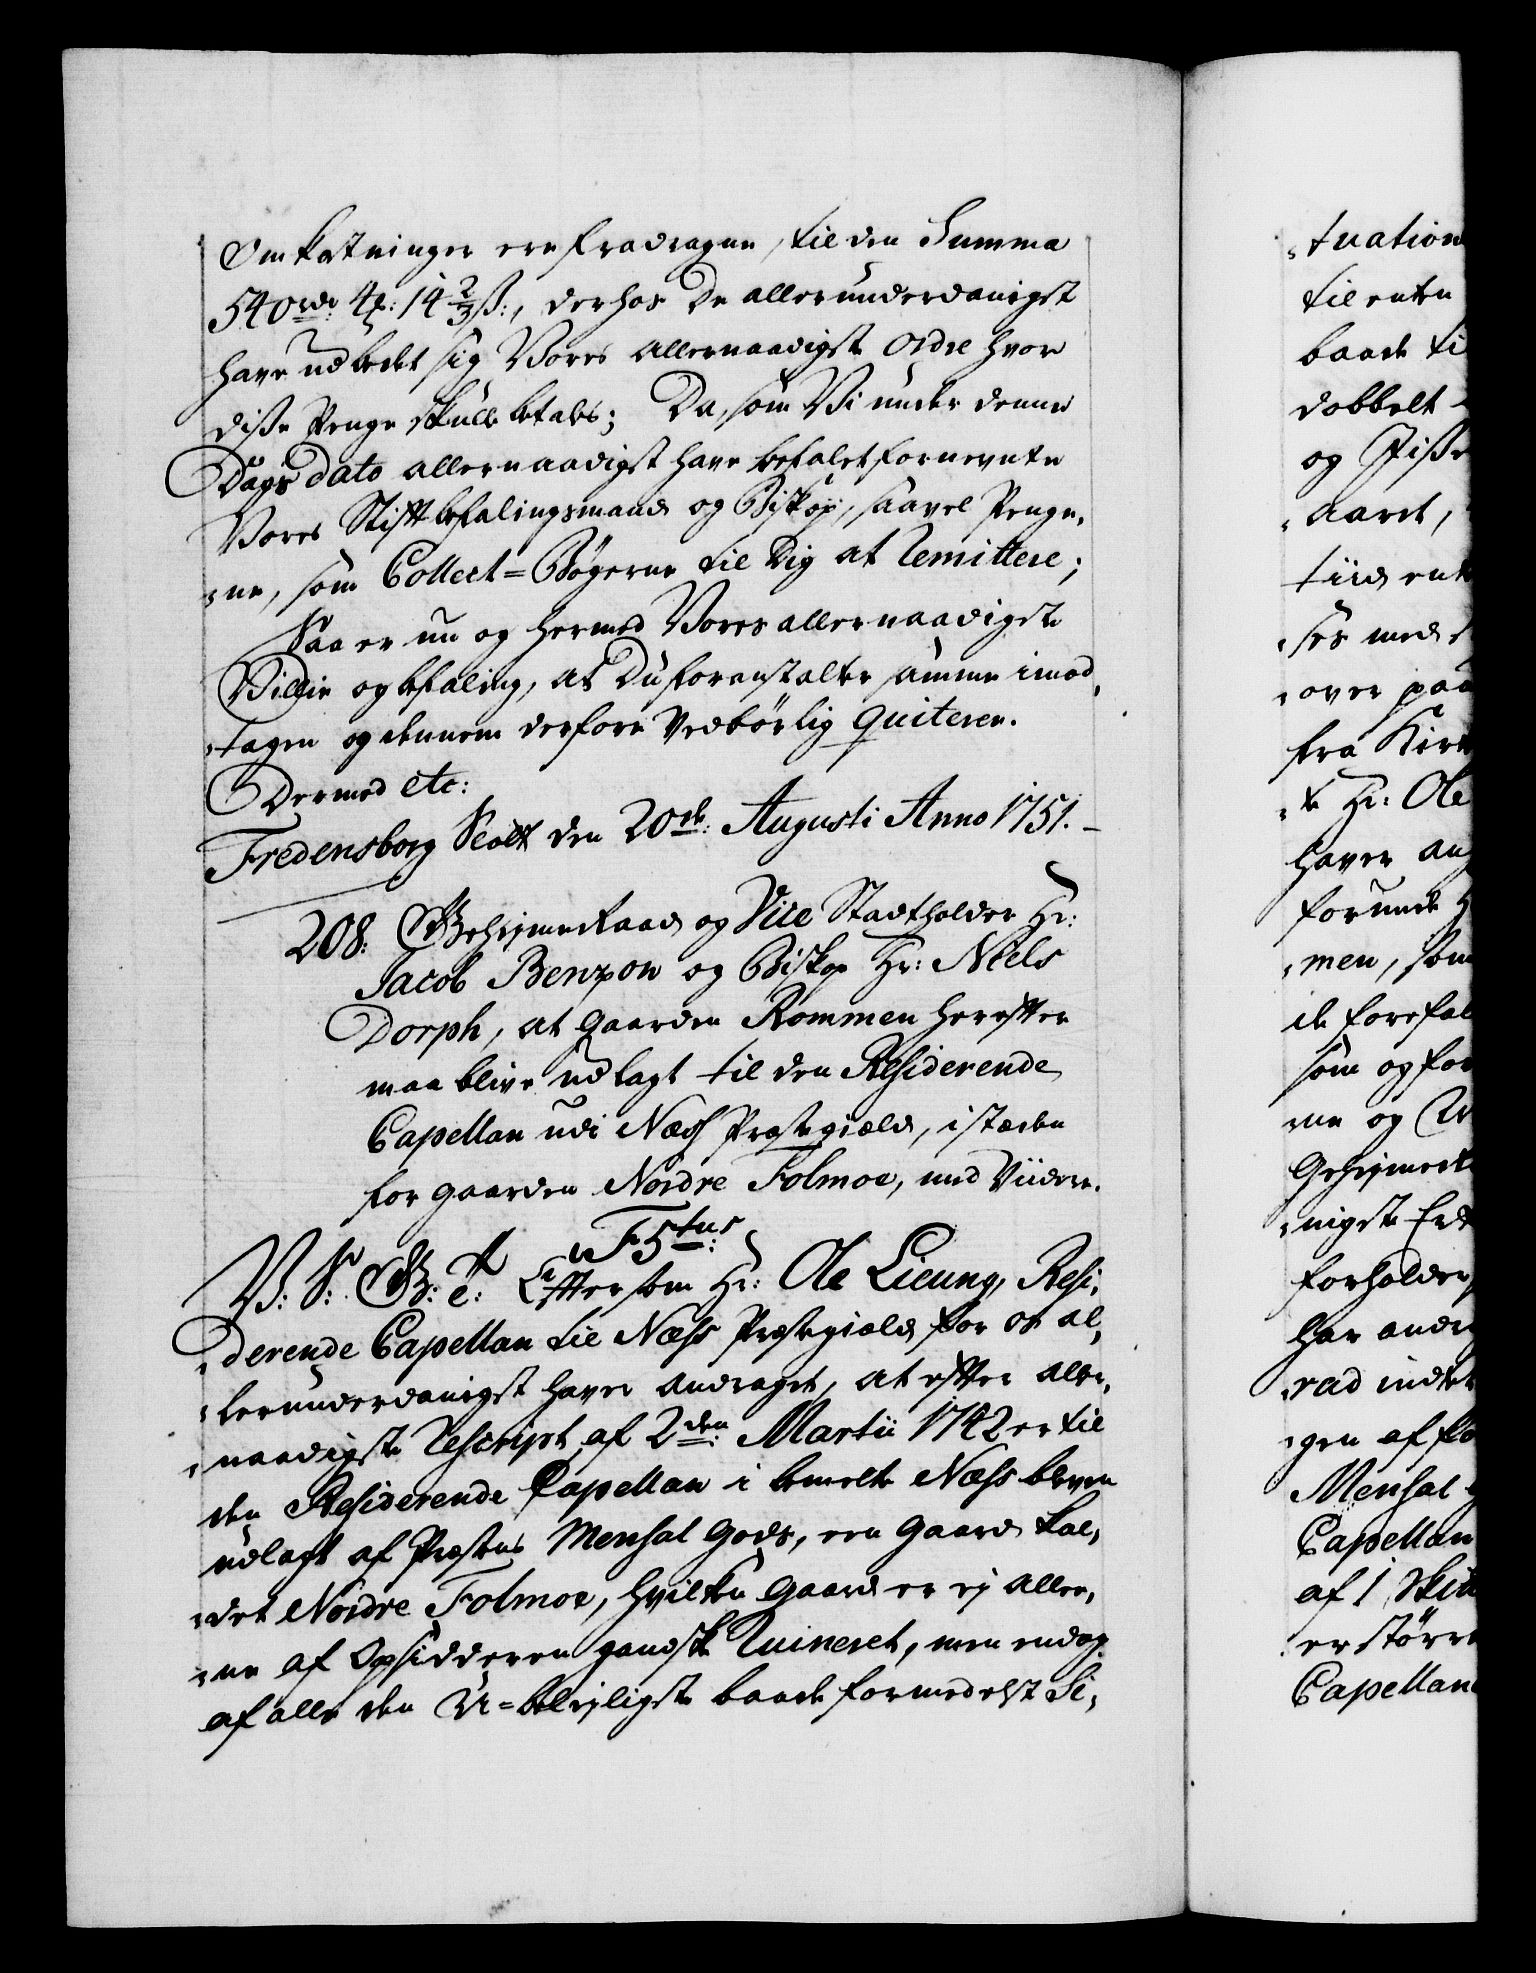 Omkostninger ere fradragne, til den Summa
540 rdr: 4 ẞ: 14 2/3 ß:, derhos De allerunderdanigst
have udbedet sig Vores allernaadigste Ordre hvor
disse Penge skulle betales; Da, som Vi under denne
Dags dato allernaadigst have befalet fornevnte
Vores Stiftbefalingsmand og Biskop, saavel Penge,
"ne, som Collect=Bøgerne til Dig at remittere;
Saa er nu og hermed Vores allernaadigste
Villie og befaling, at Du foranstalter samme imod,
"tagen og dennem derfore Vedbörlig quiteren.
Dermed etc:
Fredensborg Slott den 20de: Augusti Anno 1751. –
208. Geheimeraad og Vice Stadtholder Hr:
Jacob Benzon og Biskop Hr: Niels
Dorph, at Gaarden Rommen herefter
maa blive udlagt til den Residerende
Capellan udi Næss Præstegield, i stæden
for Gaarden Nordre Folmoe, med Viidere.
F5tus
V: S: G: T: Eftersom Hr: Ole Lieung, Resi,
"derende Capellan til Næss Præstegield for os al,
"lerunderdanigst haver andraget, at efter aller,
"naadigste Rescript af 2den: Martii 1742 er til
den Residerende Capellan i bemelte Næss bleven
udlagt af Præstens Mensal Gods, een Gaard kal,
"det Nordre Folmoe, hvilken Gaard er ej alle,
"ne af Opsidderen gandske Ruineret, men endog
af alle den U=beleyligste baade formedelst Si,
"tuation
til enten
baade ti
dobbelt
og Fiske
"Aaret,
tiid ent
"ses med
"over paa
fra Kirk
"te Hr: Ole
haver an
forunde H
"men, som
de forefal
som og for
Geheimer
"nigste Er
forholder
har andr
"rad indt
"gen af
Mensal
Capellan
af 1 Skil
er större
Capellan